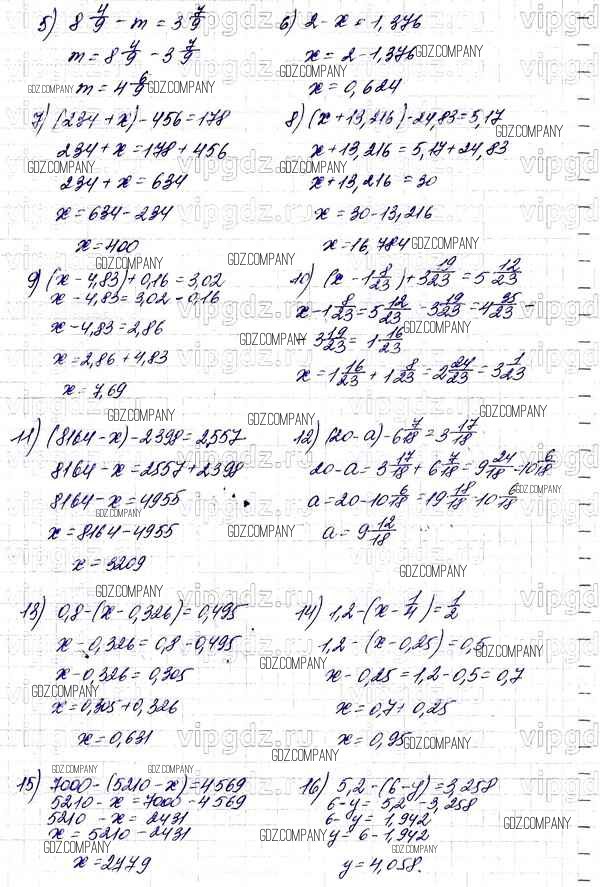 5) 8 4/9 - m = 3 7/9
m = 8 4/9 - 3 7/9
m = 4 6/9
6) 2 - x = 1,376
x = 2 - 1,376
x = 0,624
7) (234 + x) - 456 = 178
234 + x = 178 + 456
234 + x = 634
x = 634 - 234
x = 400
8) (x + 13,216) - 24,83 = 5,17
x + 13,216 = 5,17 + 24,83
x + 13,216 = 30
x = 30 - 13,216
x = 16,784
9) (x - 4,83) + 0,16 = 3,02
x - 4,83 = 3,02 - 0,16
x - 4,83 = 2,86
x = 2,86 + 4,83
x = 7,69
10) (x - 1 8/23) + 3 19/23 = 5 12/23
x - 1 8/23 = 5 12/23 - 3 19/23 = 4 35/23 -
- 3 19/23 = 1 16/23
x = 1 16/23 + 1 8/23 = 2 24/23 = 3 1/23
11) (8164 - x) - 2398 = 2557
8164 - x = 2557 + 2398
8164 - x = 4955
x = 8164 - 4955
x = 3209
12) (20 - a) - 6 7/18 = 3 17/18
20 - a = 3 17/18 + 6 7/18 = 9 24/18 = 10 6/18
a = 20 - 10 6/18 = 19 18/18 - 10 6/18
a = 9 12/18
13) 0,8 - (x - 0,326) = 0,495
x - 0,326 = 0,8 - 0,495
x - 0,326 = 0,305
x = 0,305 + 0,326
x = 0,631
14) 1,2 - (x - 1/4) = 1/2
1,2 - (x - 0,25) = 0,5
x - 0,25 = 1,2 - 0,5 = 0,7
x = 0,7 + 0,25
x = 0,95
15) 7000 - (5210 - x) = 4569
5210 - x = 7000 - 4569
5210 - x = 2431
x = 5210 - 2431
x = 2779
16) 5,2 - (6 - y) = 3,258
6 - y = 5,2 - 3,258
6 - y = 1,942
y = 6 - 1,942
y = 4,058.
GDZ.COMPANY
vipgdz.ru